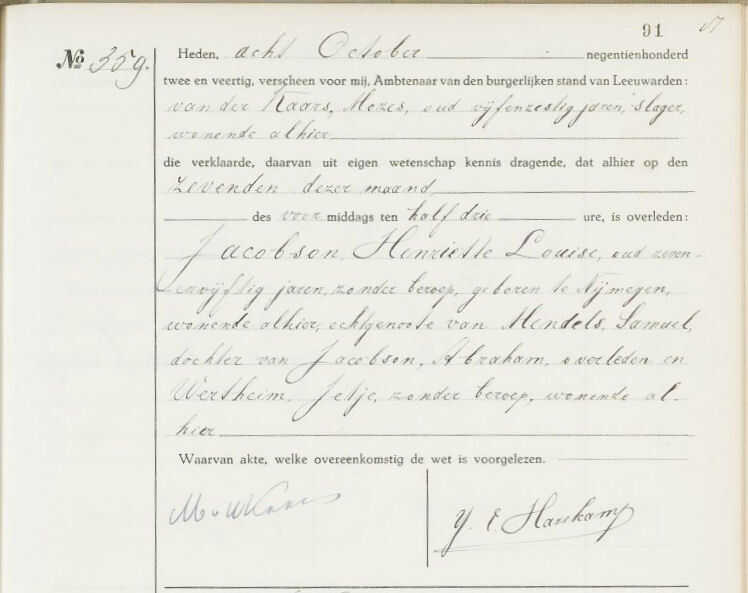 91
№ 359.
Heden, acht October negentienhonderd
twee en veertig, verscheen voor mij, Ambtenaar van den burgerlijken stand van Leeuwarden:
van der Kaars, Mozes, oud vijfenzestig jaren, slager,
wonende alhier
die verklaarde, daarvan uit eigen wetenschap kennis dragende, dat alhier op den
zevenden dezer maand
des voormiddags ten half drie ure, is overleden:
Jacobson, Henriette Louise, oud zeven-
envijftig jaren, zonder beroep, geboren te Nijmegen,
wonende alhier, echtgenoote van Mendels, Samuel,
dochter van Jacobson, Abraham, overleden en
Wertheim, Jetje, zonder beroep, wonende al-
hier
Waarvan akte, welke overeenkomstig de wet is voorgelezen.